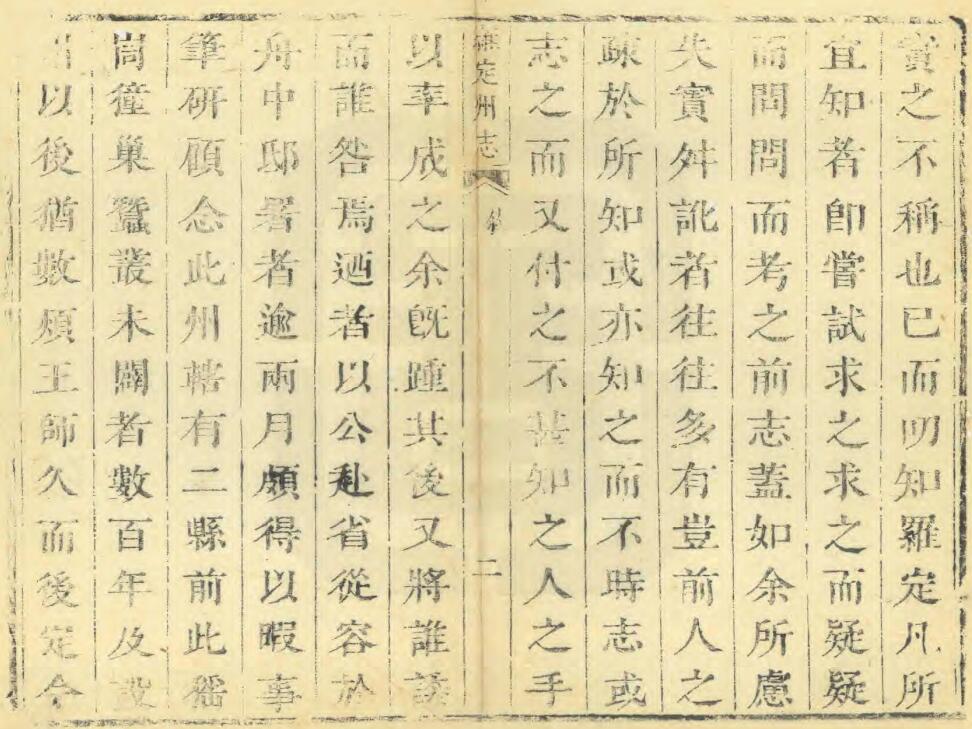 實之不稱也已而叨知羅定凡所
宜知者卽嘗試求之求之而疑疑
而問問而考之前志蓋如余所慮
失實舛訛者往往多有豈前人之
疎於所知或亦知之而不時志或
志之而又付之不甚如之人之手
羅定州志 二
以卒成之余旣踵其後又將誰諉
而誰咎焉迺者以公赴省從容於
舟中邸署者逾兩月頗得以暇事
筆硏顧念此州轄有二縣前此猺
崗獞巢蠶叢未闢者數百年及設
以後猶數煩王師久而後定今